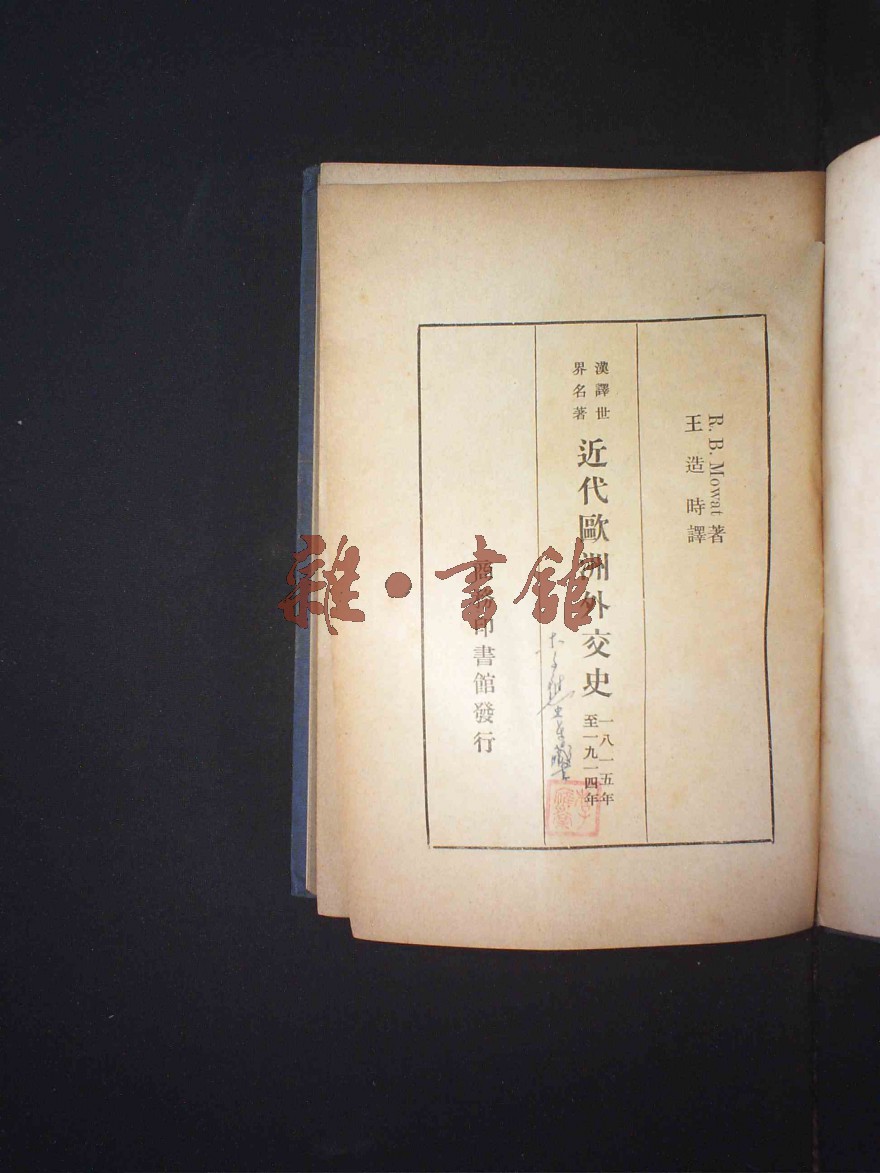 R. B. Mowat著
王造時譯
漢譯世界名著
近代歐洲外交史
一八一五年
至一九一四年
商務印書館發行
雜·書館